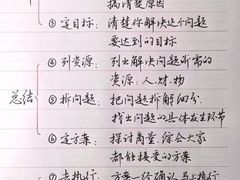 搞清原因
③ 定目标：清楚你解决这个问题
要达到的目标
④ 列资源：列出解决问题所需的
资源：人、财、物
总结
⑤ 拆问题：把问题拆解细分
找出问题的具体发生环节
⑥ 定方案：探讨商量，综合大家
都能接受的方案
⑦ 去执行：方案一经确认马上执行